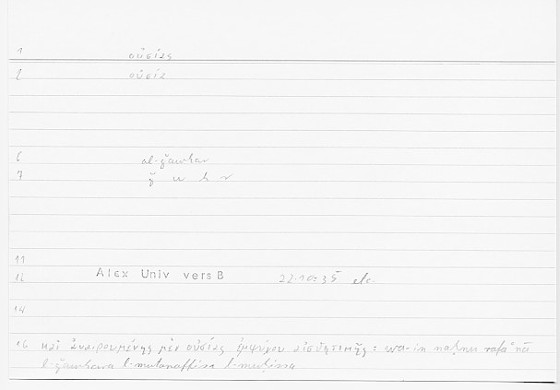 1 οὐσίας
2 οὐσία
6 al-ǧawhar
7 ǧ w h r
11
12 Alex Univ vers B 22.10:35 etc
14
16 καὶ ἀναιρουμένης μὲν οὐσίας ἐμψύχου αἰσθητικῆς : wa-in naḥnu rafaʿnā
l-ǧawhara l-mutanaffisa l-muḥissa